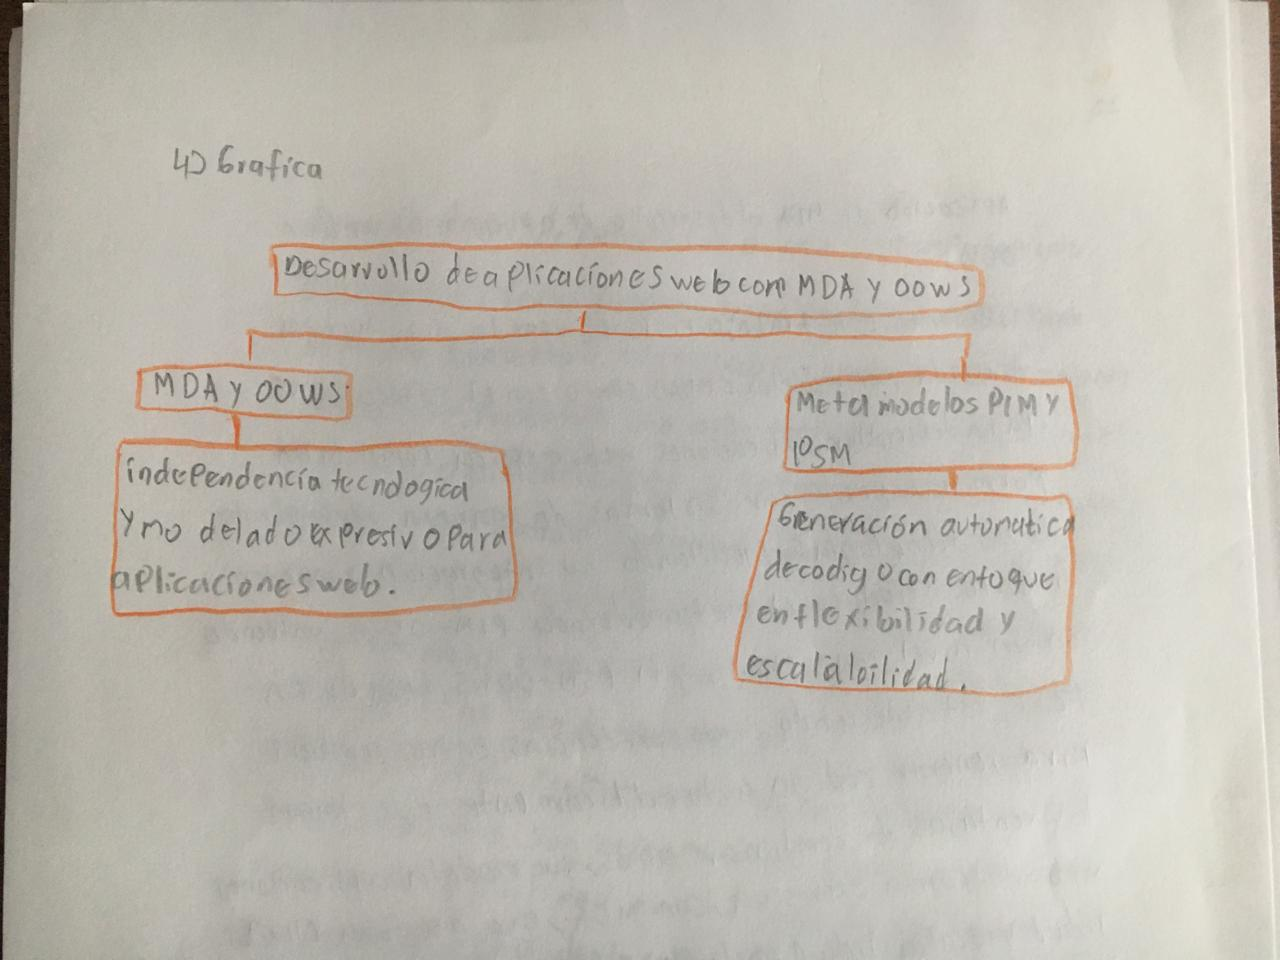 4) Grafica
Desarrollo de aplicaciones web con MDA y OOWS
MDA y OOWS.
Meta modelos PIM y
PSM
independencia tecnologica
y modelado expresivo para
aplicaciones web.
Generación automatica
de codigo con enfoque
en flexibilidad y
escalabilidad.